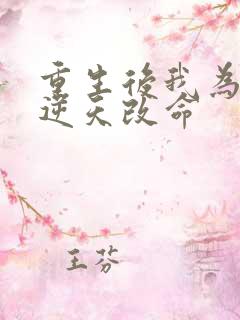 重生後我為
逆天改命
王芬